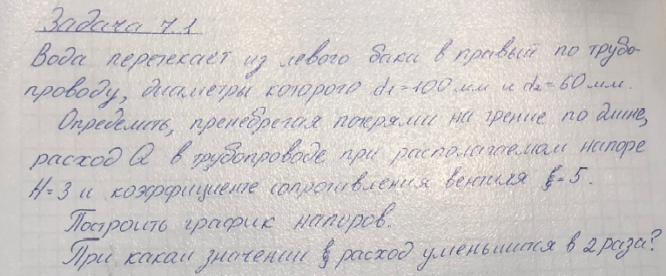 Задача 7.1
Вода перетекает из левого бака в правый по трубо-
проводу, диаметры которого d1=100 мм и d2=60 мм.
Определить, пренебрегая потерями на трение по длине,
расход Q в трубопроводе при располагаемом напоре
H=3 и коэффициенте сопротивления вентиля ξ=5.
Построить график напоров.
При каком значении ξ расход уменьшится в 2 раза?